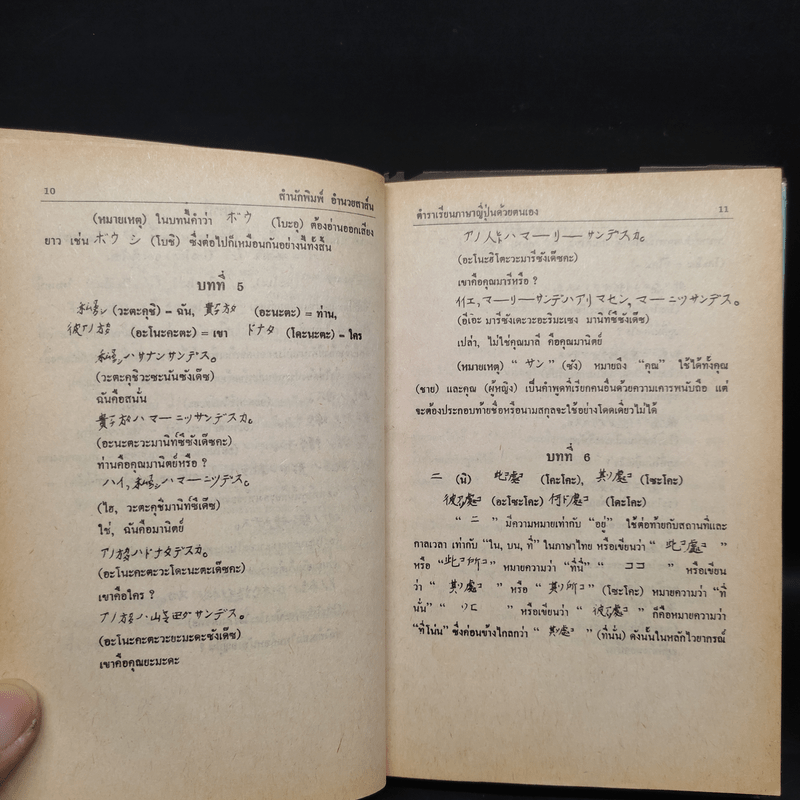 10
สำนักพิมพ์ อำนวยสาส์น
(หมายเหตุ) ในบทนี้คำว่า ボウ (โบะอุ) ต้องอ่านออกเสียง
ยาว เช่น ボウシ (โบชิ) ซึ่งต่อไปก็เหมือนกันอย่างนี้ทั้งสิ้น
บทที่ 5
(วะตะคุชิ) – ฉัน, (อะนะตะ) = ท่าน,
(อะโนะคะตะ) = เขา ドナタ (โดะนะตะ) – ใคร
ハサナンサンデス。
(วะตะคุชิวะซะนันซังเด๊ซ)
ฉันคือสนั่น
ハマーニッサンデスカ。
(อะนะตะวะมานิท์ซีซังเด๊ซคะ)
ท่านคือคุณมานิตย์หรือ ?
ハイ, ハマーニッデス。
(ไฮ, วะตะคุชิมานิท์ซีเด๊ซ)
ใช่, ฉันคือมานิตย์
アノ方ハドナタデスカ。
(อะโนะคะตะวะโดะนะตะเด๊ซคะ)
เขาคือใคร ?
アノ方ハ山田サンデス。
(อะโนะคะตะวะยะมะดะซังเด๊ซ)
เขาคือคุณยะมะดะ
ตำราเรียนภาษาญี่ปุ่นด้วยตนเอง
11
アノ人ハマーリーサンデスカ。
(อะโนะฮิโตะวะมารีซังเด๊ซคะ)
เขาคือคุณมารีหรือ ?
マーリーサンデハアリマセン, マーニッサンデス。
(อี่เอ๊ะ มารีซังเดะวะอะริมะเซง มานิท์ซีซังเด๊ซ)
เปล่า, ไม่ใช่คุณมาลี คือคุณมานิตย์
(หมายเหตุ) “ サン ” (ซัง) หมายถึง “คุณ” ใช้ได้ทั้งคุณ
(ชาย) และคุณ (ผู้หญิง) เป็นคำพูดที่เรียกคนอื่นด้วยความเคารพนับถือ แต่
จะต้องประกอบท้ายชื่อหรือนามสกุลจะใช้อย่างโดดเดี่ยวไม่ได้
บทที่ 6
ニ (นิ) 此処 (โคะโคะ), 其処 (โซะโคะ)
彼処 (อะโซะโคะ) 何処 (โดะโคะ)
“ ニ ” มีความหมายเท่ากับ “อยู่” ใช้ต่อท้ายกับสถานที่และ
กาลเวลา เท่ากับ “ใน, บน, ที่” ในภาษาไทย หรือเขียนว่า “ 此処 ”
หรือ “ 此所 ” หมายความว่า “ที่นี่” “ ココ ” หรือเขียน
ว่า “ 其処 ” หรือ “ 其所 ” (โซะโคะ) หมายความว่า “ที่
นั่น” “ ソコ ” หรือเขียนว่า “ 彼処 ” ก็คือหมายความว่า
“ที่โน่น” ซึ่งค่อนข้างไกลกว่า “ 其処 ” (ที่นั่น) ดังนั้นในหลักไวยากรณ์